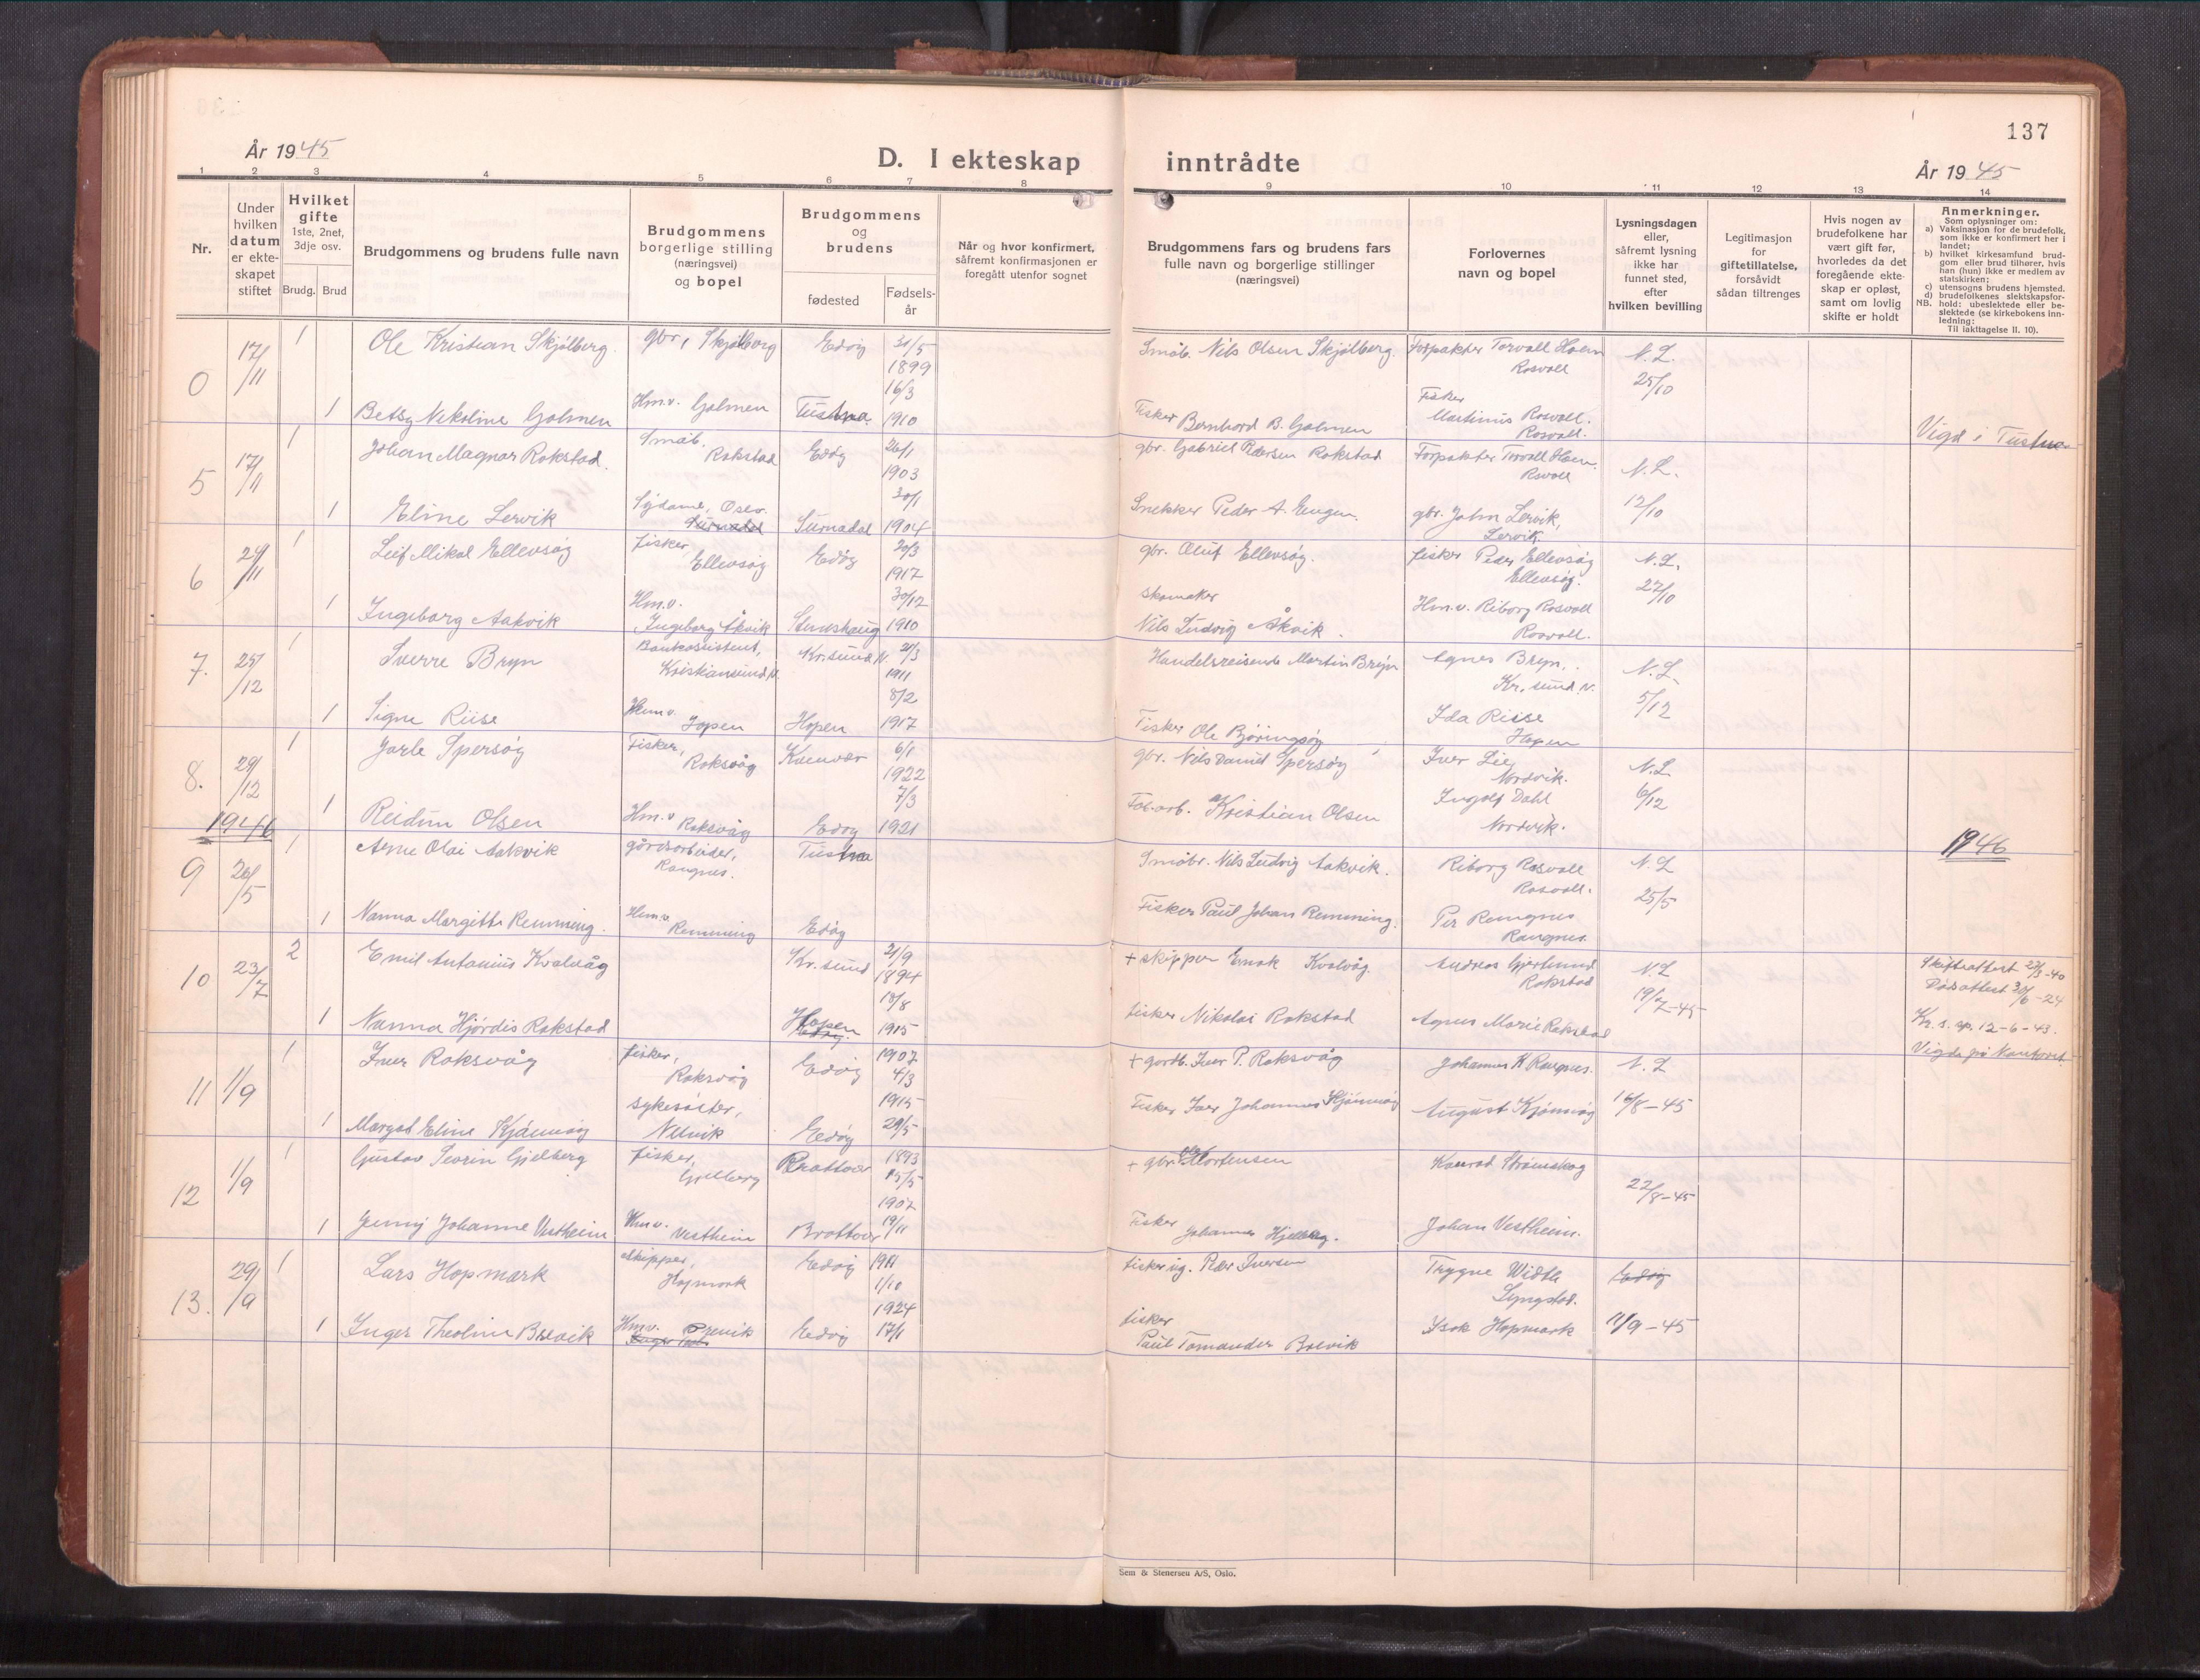 137
År 1945
D. I ekteskap inntrådte
År 1945
1 2 3 4 5 6 7 8 9 10 11 12 13 14
Nr.
Under hvilken datum er ekte-skapet stiftet
Hvilket gifte 1ste, 2net, 3dje osv.
Brudg. Brud
Brudgommens og brudens fulle navn
Brudgommens borgerlige stilling (næringsvei) og bopel
Brudgommens og brudens
fødested
Fødsels-år
Når og hvor konfirmert, såfremt konfirmasjonen er foregått utenfor sognet
Brudgommens fars og brudens fars fulle navn og borgerlige stillinger (næringsvei)
Forlovernes navn og bopel
Lysningsdagen eller, såfremt lysning ikke har funnet sted, efter hvilken bevilling
Legitimasjon for giftetillatelse, forsåvidt sådan tiltrenges
Hvis nogen av brudefolkene har vært gift før, hvorledes da det foregående ekte-skap er opløst, samt om lovlig skifte er holdt
Anmerkninger.
Som oplysninger om:
a) Vaksinasjon for de brudefolk, som ikke er konfirmert her i landet;
b) hvilket kirkesamfund brud-gom eller brud tilhører, hvis han (hun) ikke er medlem av statskirken;
c) utensogns brudens hjemsted.
d) brudefolkenes slektskapsfor-hold: ubeslektede eller be-slektede (se kirkebokens inn-ledning:
NB. Til iakttagelse II. 10).
0 17/11 1 Ole Kristian Skjølberg. gbr, Skjølberg Edøy 21/5 1899 Småb. Nils Olsen Skjølberg. Forpakter Torvall Hoem Rosvoll N.L. 25/10
1 Betsy Nikoline Golmen Hm.v. Golmen Tustna. 16/3 1910 Fisker Bernhard B. Golmen Fisker Martinus Rosvoll. Rosvoll. Vigd i Tustna
5 17/11 1 Johan Magnar Rokstad. Småb. Rokstad Edøy 26/1 1903 gbr. Gabriel Pedersen Rokstad Forpakter Torvall Hoem. Rosvoll N.L. 12/10
1 Eline Lervik Sydame, Oslo. Surnadal Surnadal 30/1 1904 Snekker Peder A. Engen. gbr. John Lervik, Lervik.
6 24/11 1 Leif Mikal Ellevsøy fisker Ellevsøy Edøy 20/3 1917 gbr. Oluf Ellevsøy. fisker Peder Ellevsøy Ellevsøy. N.L. 27/10
1 Ingeborg Aakvik Hm.v. Ingeborg Åkvik Stemshaug 30/12 1910 skomaker Nils Ludvig Åkvik. Hm.v. Riborg Rosvoll Rosvoll.
7. 25/12 1 Sverre Bryn Bankassistent, Kristiansund N. Kr.sund N. 2/3 1911 Handelsreisende Martin Bryn Agnes Bryn, Kr. sund N. N.L. 5/12
1 Signe Riise Hm.v. Hopen Hopen 8/2 1917 Fisker Ole Bjøringsøy Ida Riise Hopen
8. 29/12 1 Jarle Spersøy Fisker, Roksvåg 6/1 1922 gbr. Nils Daniel Spersøy Iver Lie Nordvik. N.L. 6/12
1 Reidun Olsen Hm.v Roksvåg Edøy 7/3 1921 Fab.arb. Kristian Olsen Ingolf Dahl Nordvik.
1946 1946
9 26/5 1 Arne Olai Aakvik gårdsarbeider, Rangnes. Tustna Småbr. Nils Ludvig Aakvik. Riborg Rosvoll Rosvoll. N.L 25/5
1 Nanna Margitte Remming. Hm.v. Remming Edøy Fisker Paul Johan Remming. Per Rangnes Rangnes.
10 23/7 2 Emil Antonius Kvalvåg Kr.sund 21/9 1894 + skipper Enok Kvalvåg. Andreas Gjerlund Rokstad N.L 19/7-45 Skifteattest 27/3-40
Dåbsattest 30/6-24
1 Nanna Hjørdis Rokstad Hopen Edøy. 18/8 1915 fisker Nikolai Rokstad Agnes Marie Rokstad Kr.s. sp. 12-6-43.
Vigde på Kontoret.
11 1/9 1 Iver Roksvåg fisker, Roksvåg Edøy 1907 4/3 + gardb. Iver P. Roksvåg Johannes K Rangnes. N.L 16/8-45
1 Margot Eline Kjønnøy sykesøster, Nelvik Edøy 1915 29/5 Fisker Iver Johannes Kjønnøy August Kjønnøy
12 1/9 1 Gustav Severin Gjelberg fisker, Gjelberg Brattvær 1893 15/5 + gbr. Ole Mortensen Konrad Strømskag 22/8-45
1 Jenny Johanne Vestheim Hm.v. Vestheim Brattvær 1907 19/11 Fisker Johannes Hjellberg. Johan Vestheim.
13. 29/9 1 Lars Hopmark skipper, Hopmark Edøy 1911 1/10 fisker ug. Peder Iversen Trygve Width Lyngstad. Edøy
1 Inger Theoline Brevik Hm.v. Brevik Edøy 1924 17/1 fisker Paul Tomander Brevik Isak Hopmark 11/9-45
Sem & Stenersen A/S, Oslo.